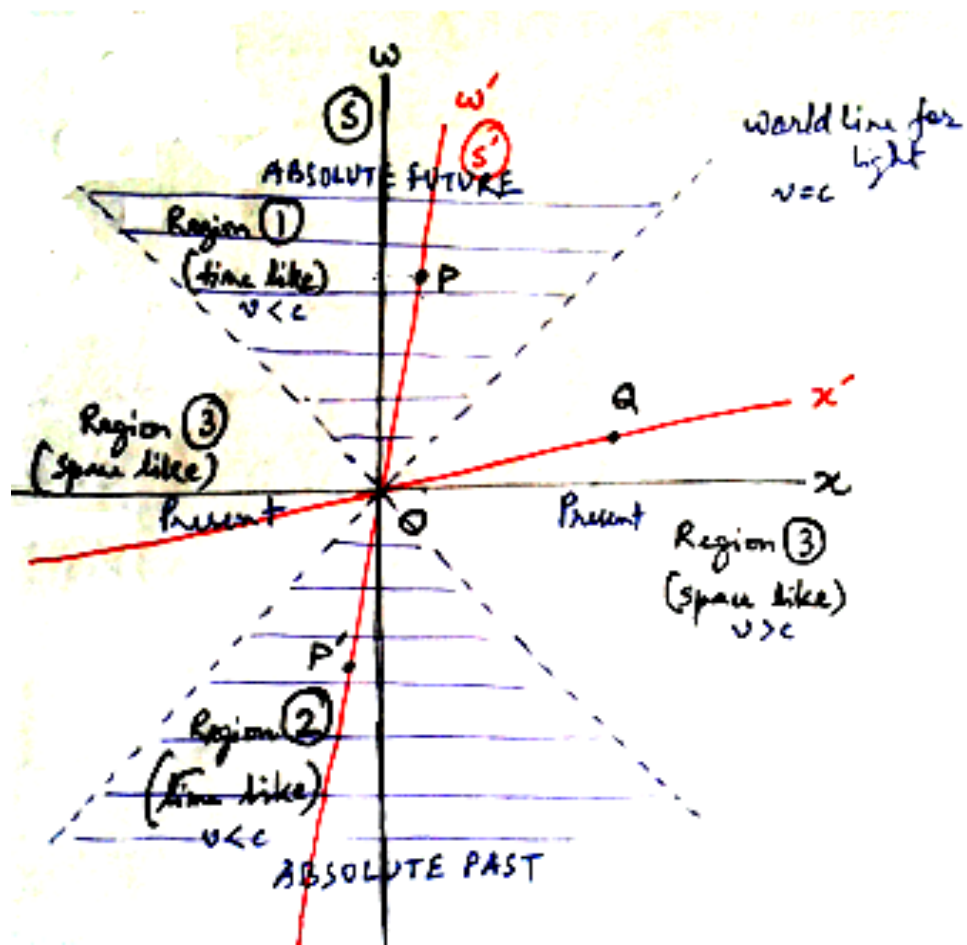 w
w'
S
S'
world line for
light
v=c
ABSOLUTE FUTURE
Region 1
(time like)
v<c
P
Q
x'
Region 3
(space like)
x
O
Present
Present
Region 3
(space like)
v>c
P'
Region 2
(time like)
v<c
ABSOLUTE PAST